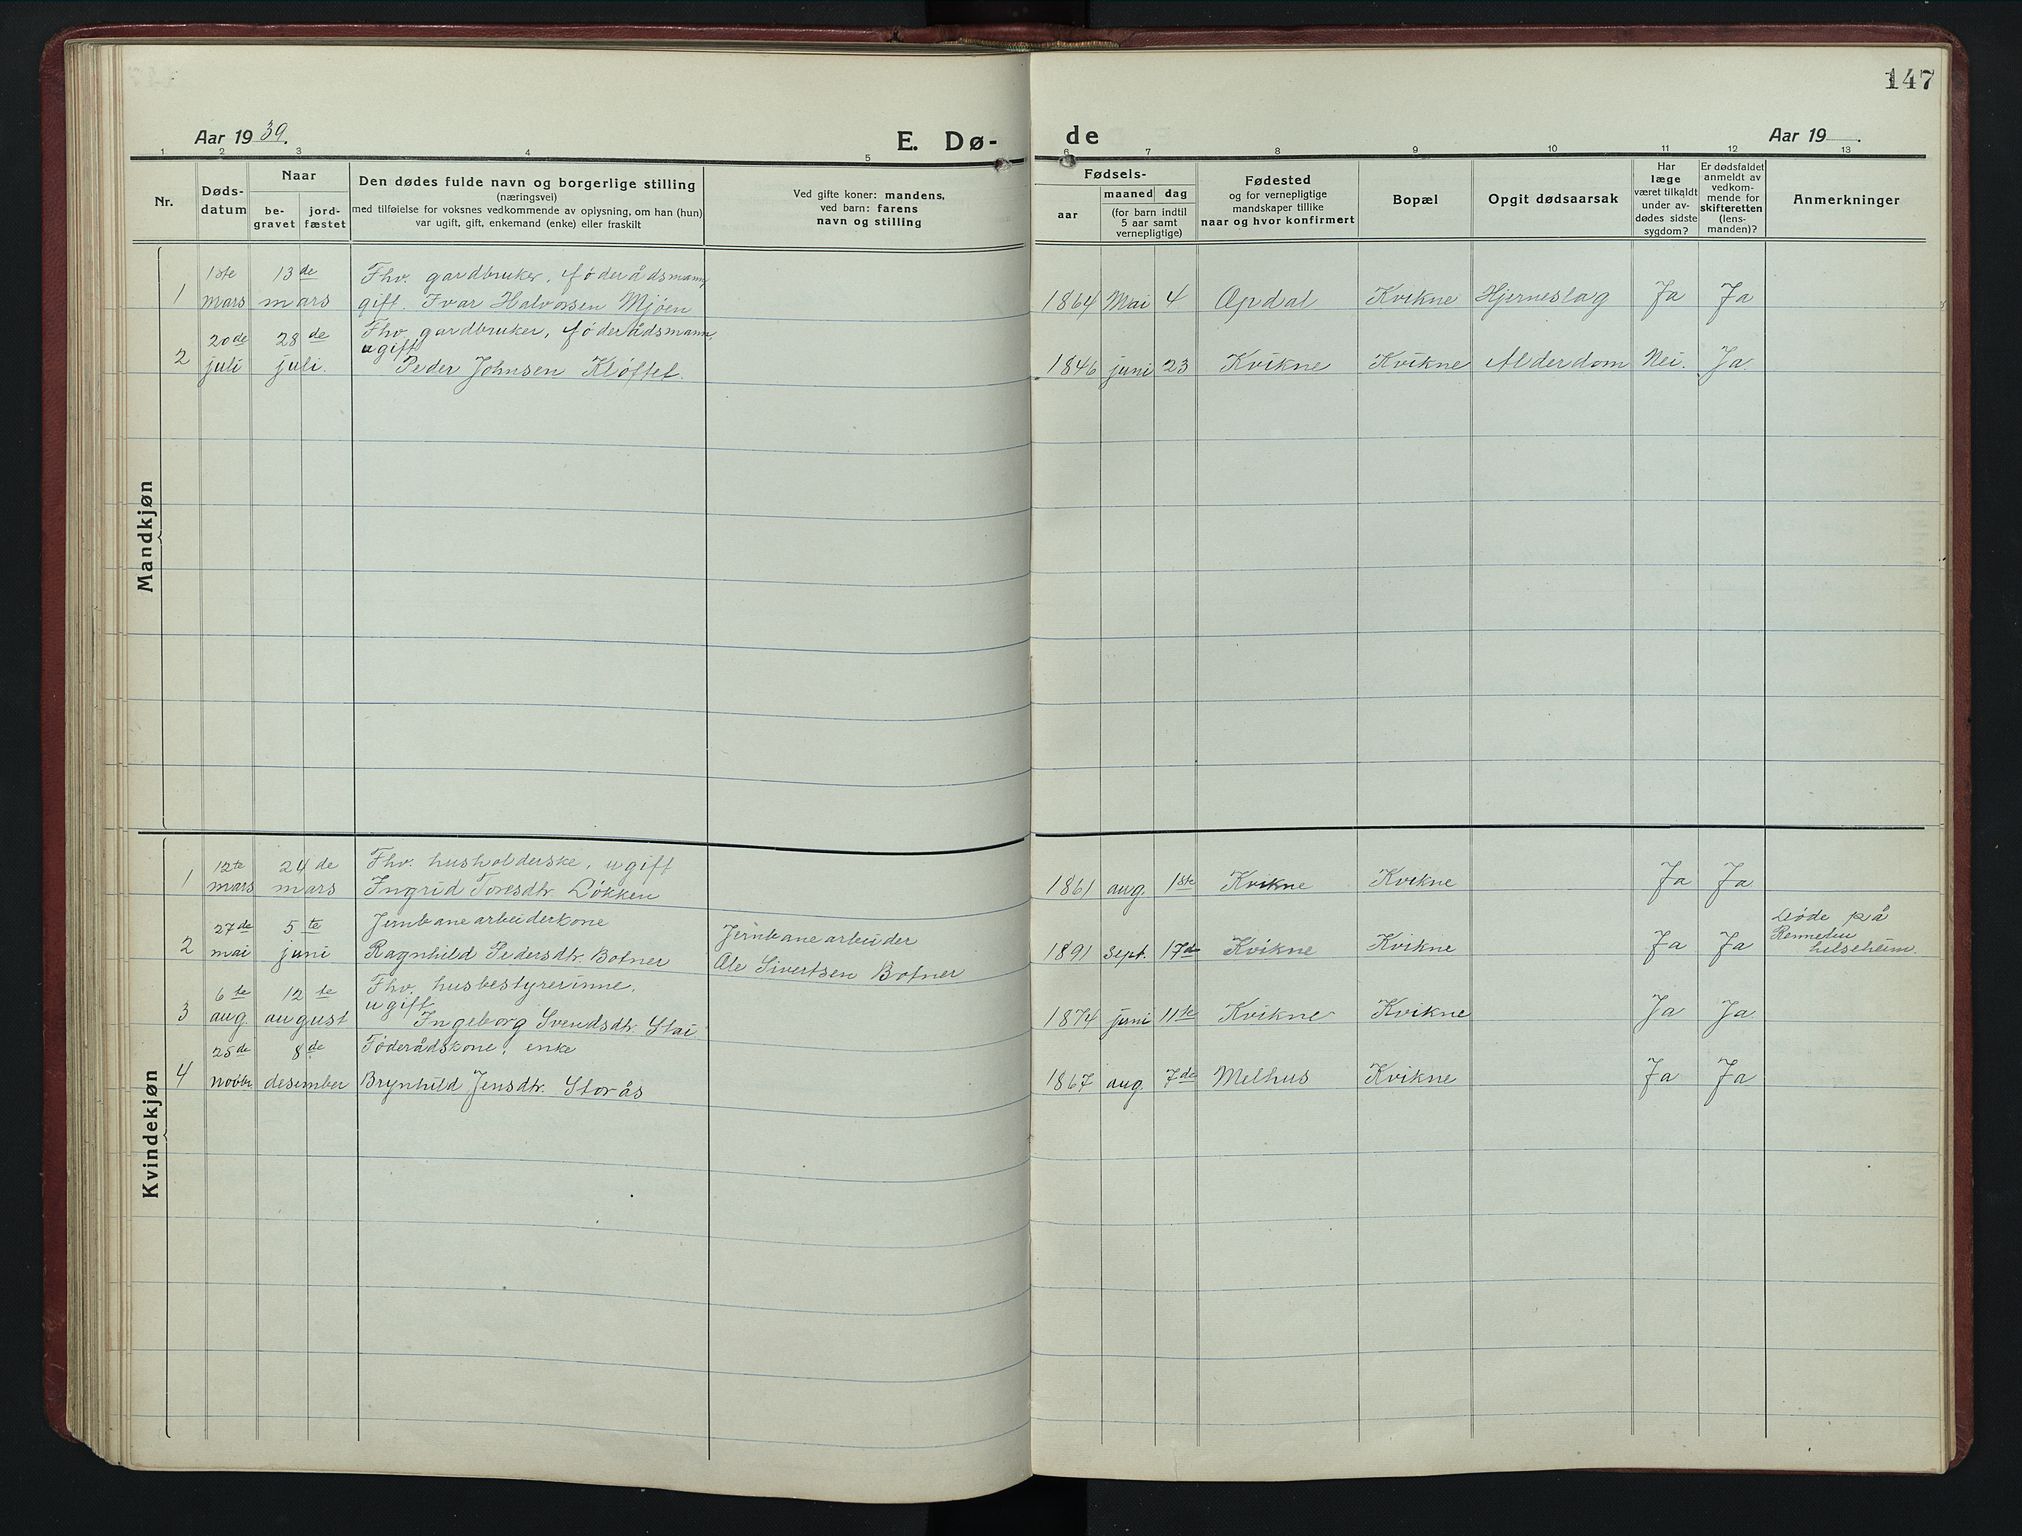 147
Aar 1939.
E. Dø-
de
Aar 19
1 2 3 4 5 6 7 8 9 10 11 12 13
Nr.
Døds-
datum
Naar
be-
gravet
jord-
fæstet
Den dødes fulde navn og borgerlige stilling
(næringsvei)
med tilføielse for voksnes vedkommende av oplysning, om han (hun)
var ugift, gift, enkemand (enke) eller fraskilt
Ved gifte koner: mandens,
ved barn: farens
navn og stilling
Fødsels-
aar
maaned
dag
(for barn indtil
5 aar samt
vernepligtige)
Fødested
og for vernepligtige
mandskaper tillike
naar og hvor konfirmert
Bopæl
Opgit dødsaarsak
Har
læge
været tilkaldt
under av-
dødes sidste
sygdom?
Er dødsfaldet
anmeldt av
vedkom-
mende for
skifteretten
(lens-
manden)?
Anmerkninger
Mandkjøn
1ste 13de Fhv. gardbruker, føderådsmann,
1 mars mars gift. Ivar Halvorsen Mjøen 1864 Mai 4 Opdal Kvikne Hjerneslag Ja Ja
20de 28de Fhv. gardbruker, føderådsmann,
ugift
2 juli juli. Peder Johnsen Kløftet. 1846 juni 23 Kvikne Kvikne Alderdom Nei. Ja.
Kvindekjøn
12te 24de Fhv. husholderske, ugift
1 mars mars Ingrid Toresdtr. Løkken 1861 aug. 1ste Kvikne Kvikne Ja Ja
27de 5te Jernbanearbeiderkone Jernbanearbeider Døde på
2 mai juni Ragnhild Pedersdtr. Botner Ole Sivertsen Botner 1891 Sept. 17de Kvikne Kvikne Ja Ja helseheim.
6te 12te Fhv. husbestyrerinne,
ugift
3 aug. august Ingeborg Svendsdtr. Stai 1874 juni 11te Kvikne Kvikne Ja Ja.
25de 8de Føderådskone, enke
4 novbr desember Brynhild Jensdtr. Storås 1867 aug. 7de Melhus Kvikne Ja Ja